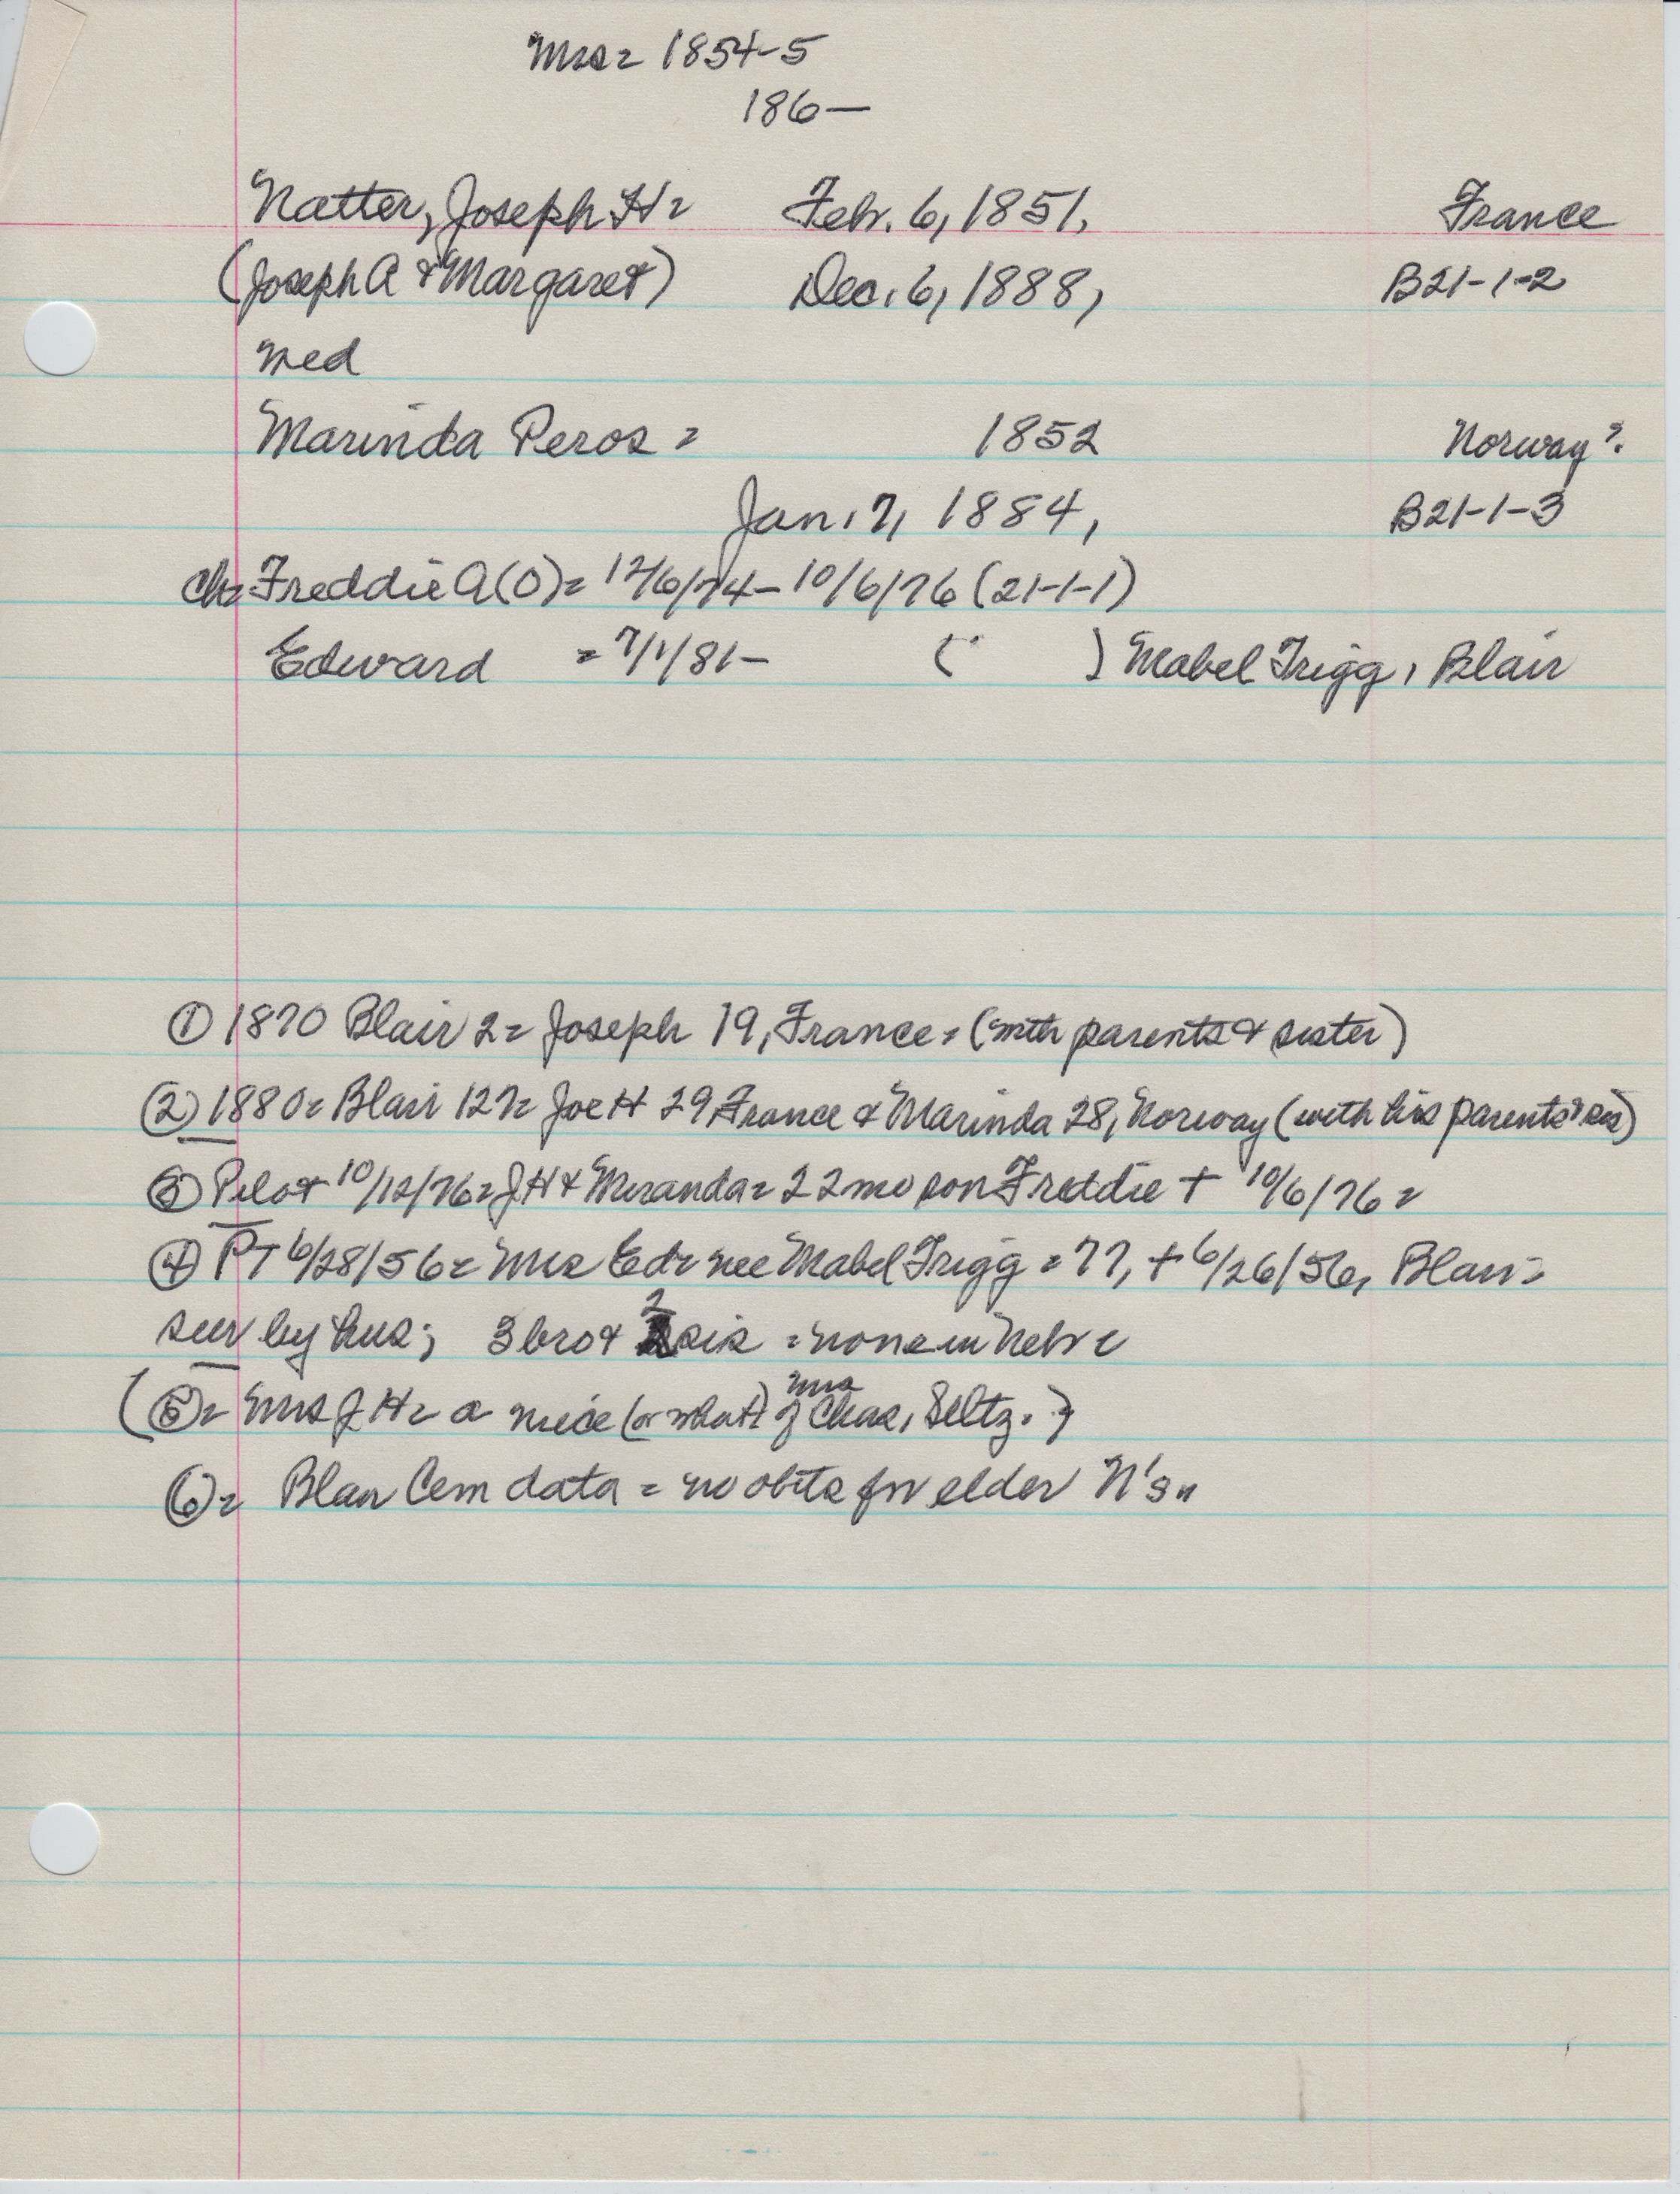 Mrs = 1854-5
186—
Natter, Joseph H = Feb. 6, 1851, France
(Joseph A & Margaret) Dec. 6, 1888, B21-1-2
med
Marinda Peros = 1852 Norway?
Jan. 7, 1884, B21-1-3
ch = Freddie A (O) = 12/6/74 - 10/6/76 (21-1-1)
Edward = 7/1/81 - ( ) Mabel Trigg, Blair
① 1870 Blair 2 = Joseph 19, France = (with parents & sister)
② 1880 = Blair 127 = Joe H 29 France & Marinda 28, Norway (with his parents & sis)
③ Pilot 10/12/76 = J H & Miranda = 22 mo son Freddie + 10/6/76 =
④ PT 6/28/56 = Mrs Ed = nee Mabel Trigg = 77, + 6/26/56, Blair =
sur by hus; 3 bro & 2 sis = none in Nebr =
(⑤ = Mrs J H = a niece (or what) of Mrs Chas, Seltz. ?)
⑥ = Blair Cem data = no obits for elder N's"